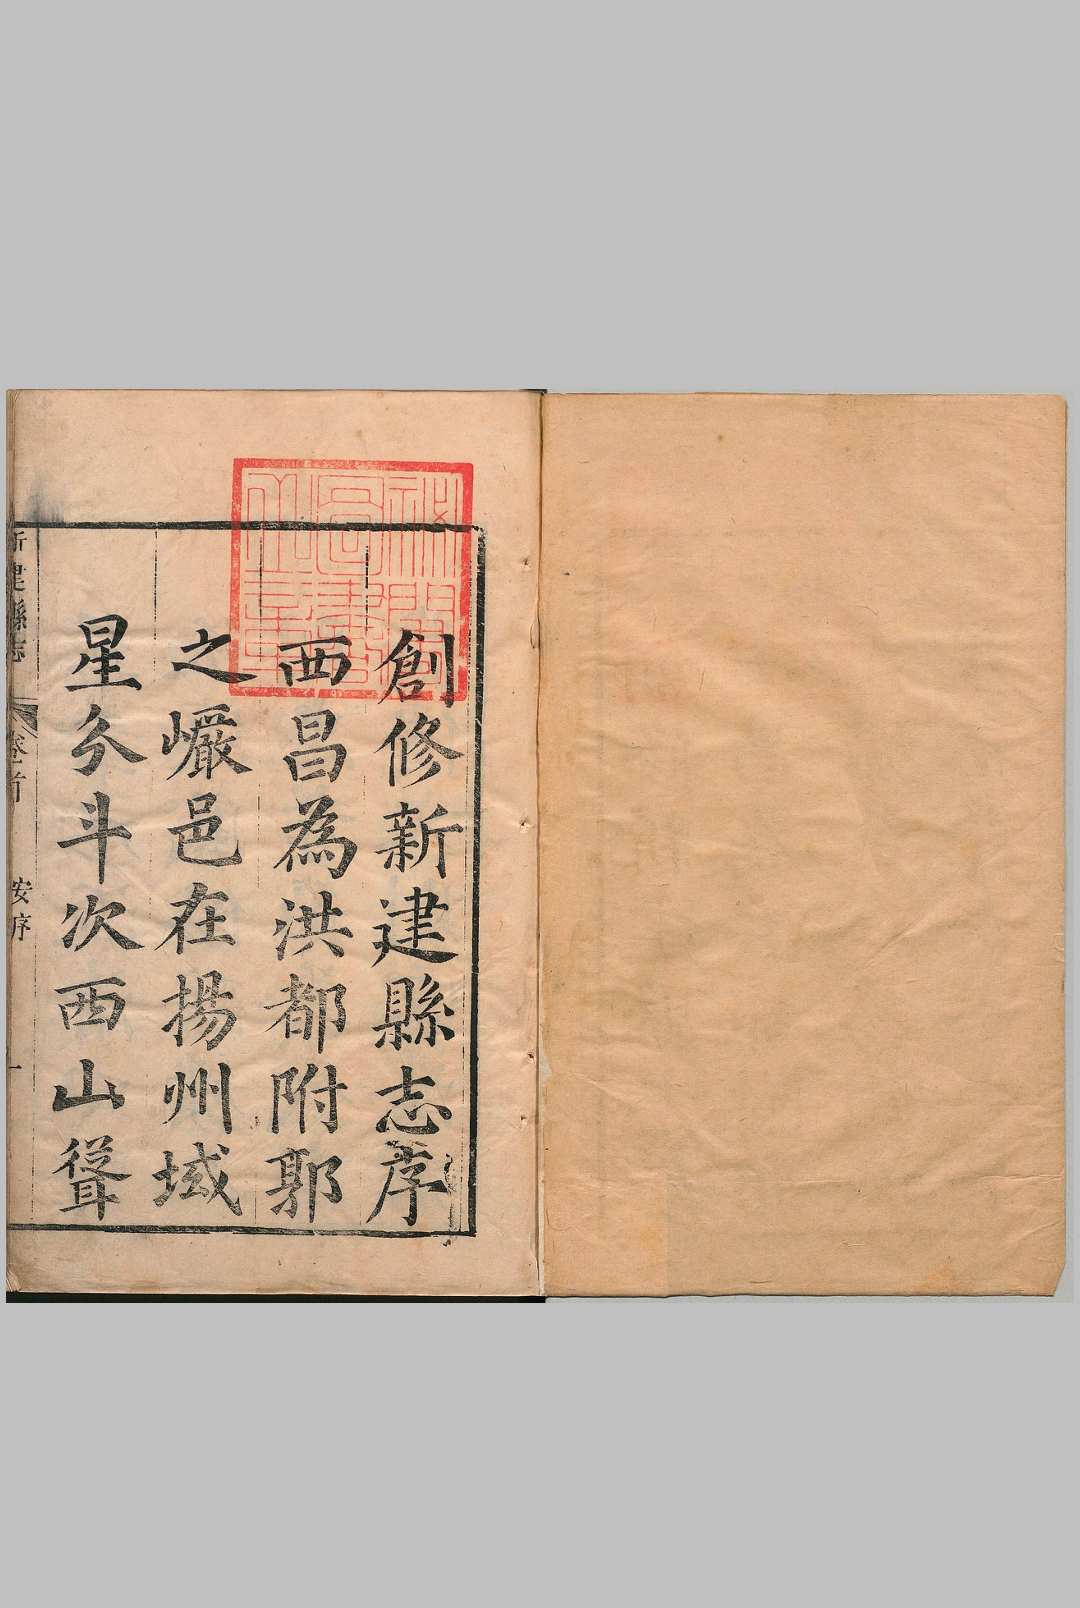 創修新建縣志序
西昌為洪都附郭
之巖邑在揚州域
星分斗次西山聳
新建縣志 卷首 安序 一